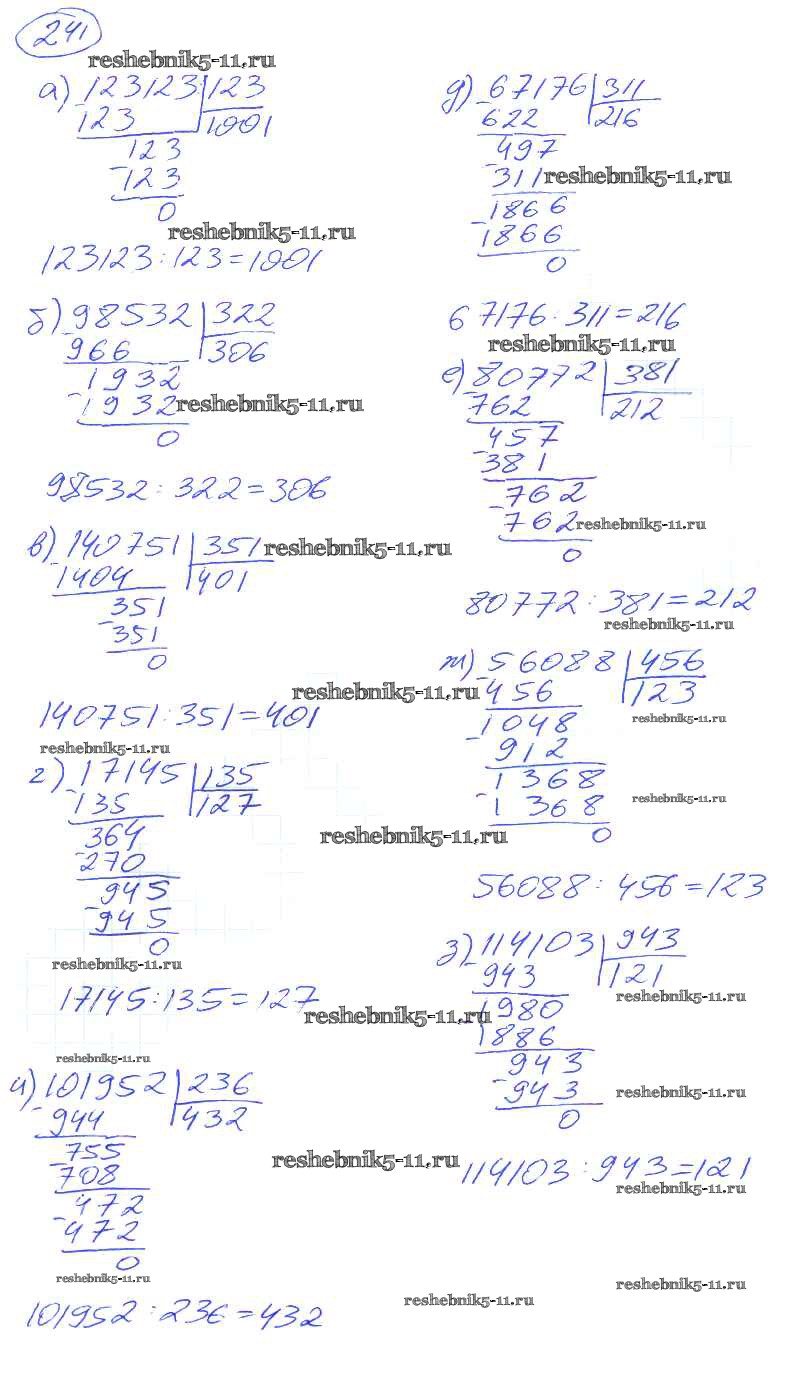 241
reshebnik5-11.ru
а) 123123 123
123 1001
123
123
0
reshebnik5-11.ru
123123 : 123 = 1001
б) 98532 322
966 306
1932
1932 reshebnik5-11.ru
0
98532 : 322 = 306
в) 140751 351 reshebnik5-11.ru
1404 401
351
351
0
reshebnik5-11.ru
140751 : 351 = 401
reshebnik5-11.ru
г) 17145 135
135 127
364
270
945
945
0
reshebnik5-11.ru
reshebnik5-11.ru
17145 : 135 = 127
reshebnik5-11.ru
reshebnik5-11.ru
и) 101952 236
944 432
755
708
472
472
0
reshebnik5-11.ru
reshebnik5-11.ru
101952 : 236 = 432
д) 67176 311
622 216
497
311 reshebnik5-11.ru
1866
1866
0
67176 . 311 = 216
reshebnik5-11.ru
е) 80772 381
762 212
457
381
762
762 reshebnik5-11.ru
0
80772 : 381 = 212
reshebnik5-11.ru
ж) 56088 456
456 123
1048 reshebnik5-11.ru
912
1368
1368 reshebnik5-11.ru
0
56088 : 456 = 123
з) 114103 943
943 121
1980 reshebnik5-11.ru
1886
943
943 reshebnik5-11.ru
0
114103 : 943 = 121
reshebnik5-11.ru
reshebnik5-11.ru
reshebnik5-11.ru